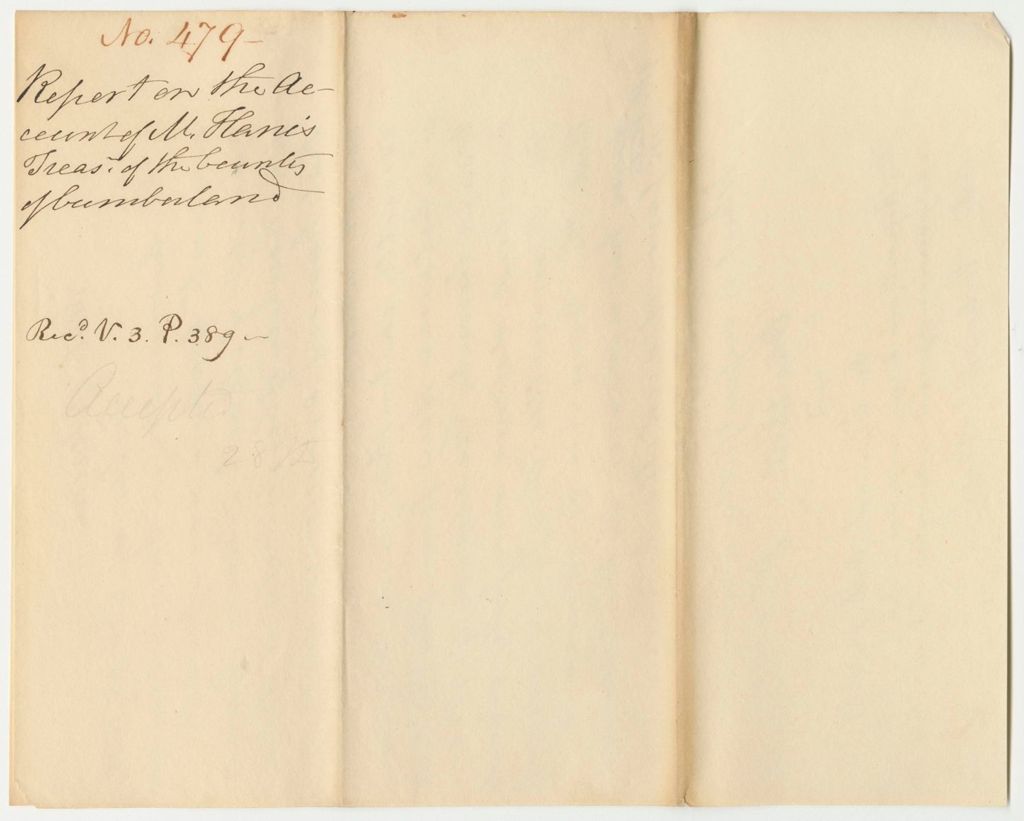 No. 479-
Report on the Ac-
count of M. Harris
Treasr. of the County
of Cumberland
Recd. V. 3. P. 389 -
Accepted